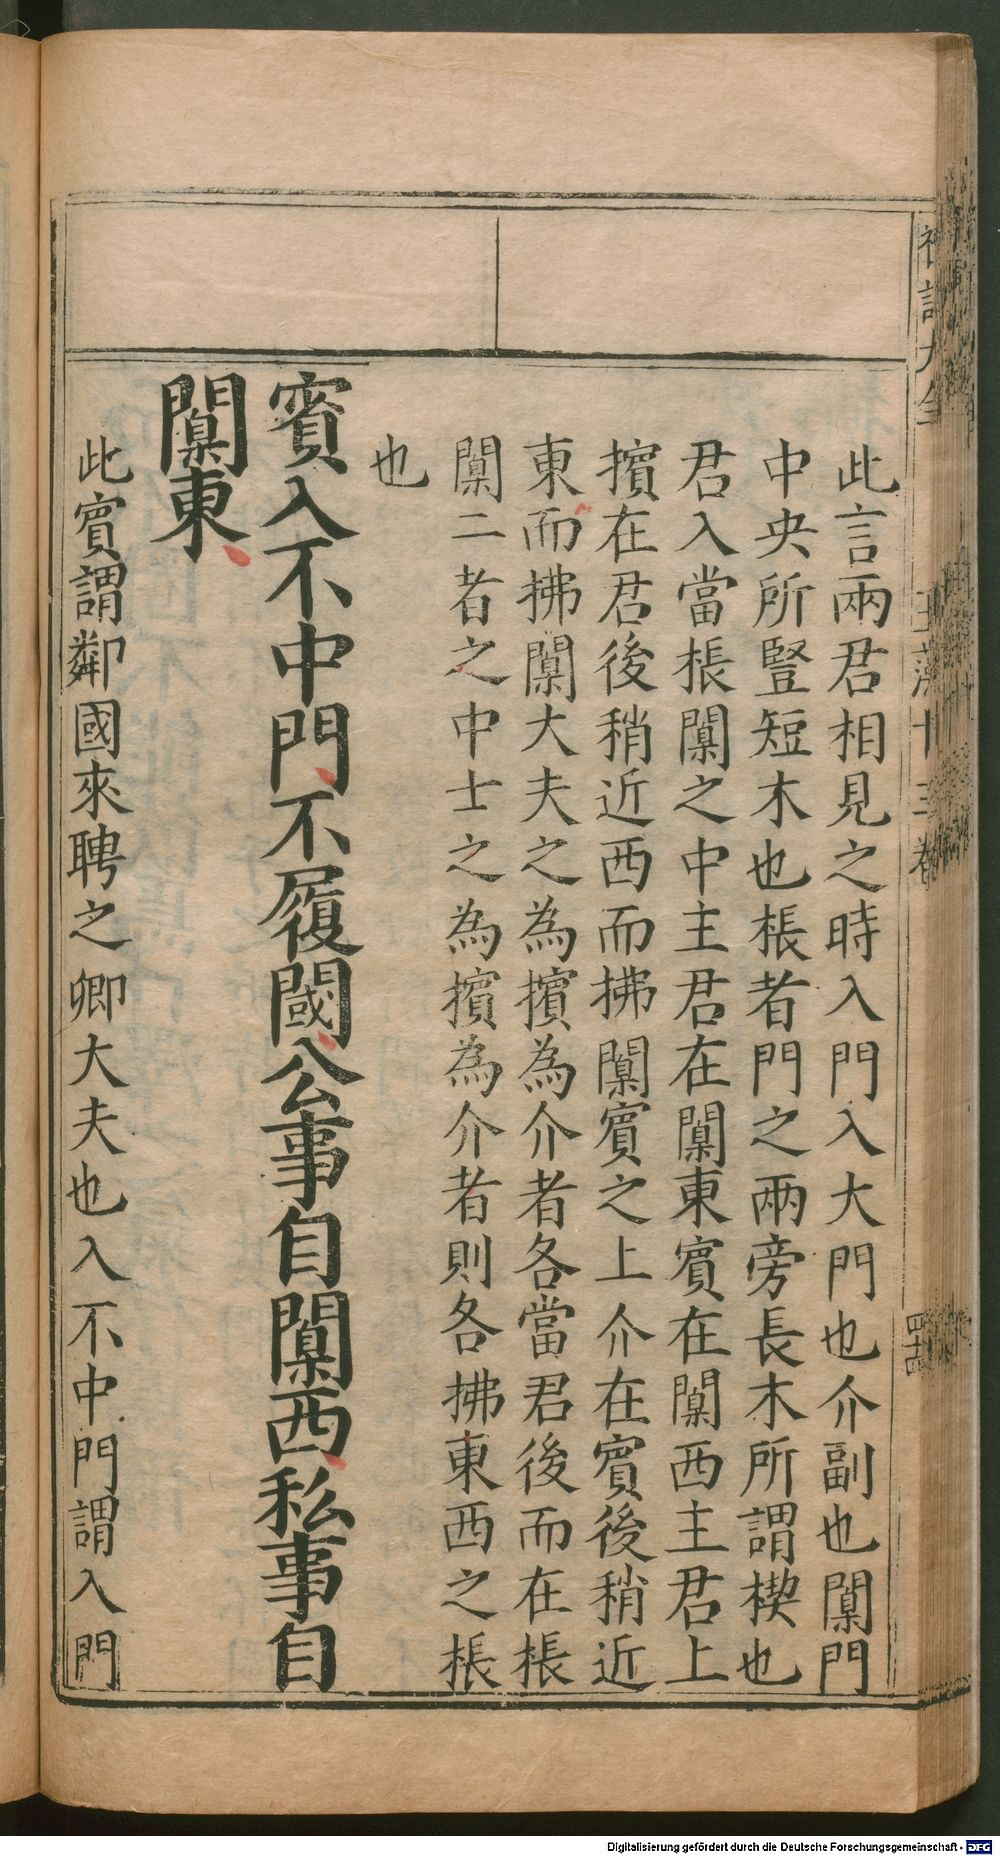 此言兩君相見之時入門入大門也介副也闑門
中央所豎短木也棖者門之兩旁長木所謂楔也
君入當棖闑之中主君在闑東賓在闑西主君上
擯在君後稍近西而拂闑賓之上介在賓後稍近
東而拂闑大夫之為擯為介者各當君後而在棖
闑二者之中士之為擯為介者則各拂東西之棖
也
賓入不中門不履閾公事自闑西私事自
闑東
此賓謂鄰國來聘之卿大夫也入不中門謂入門
四十四
Digitalisierung gefördert durch die Deutsche Forschungsgemeinschaft - DFG